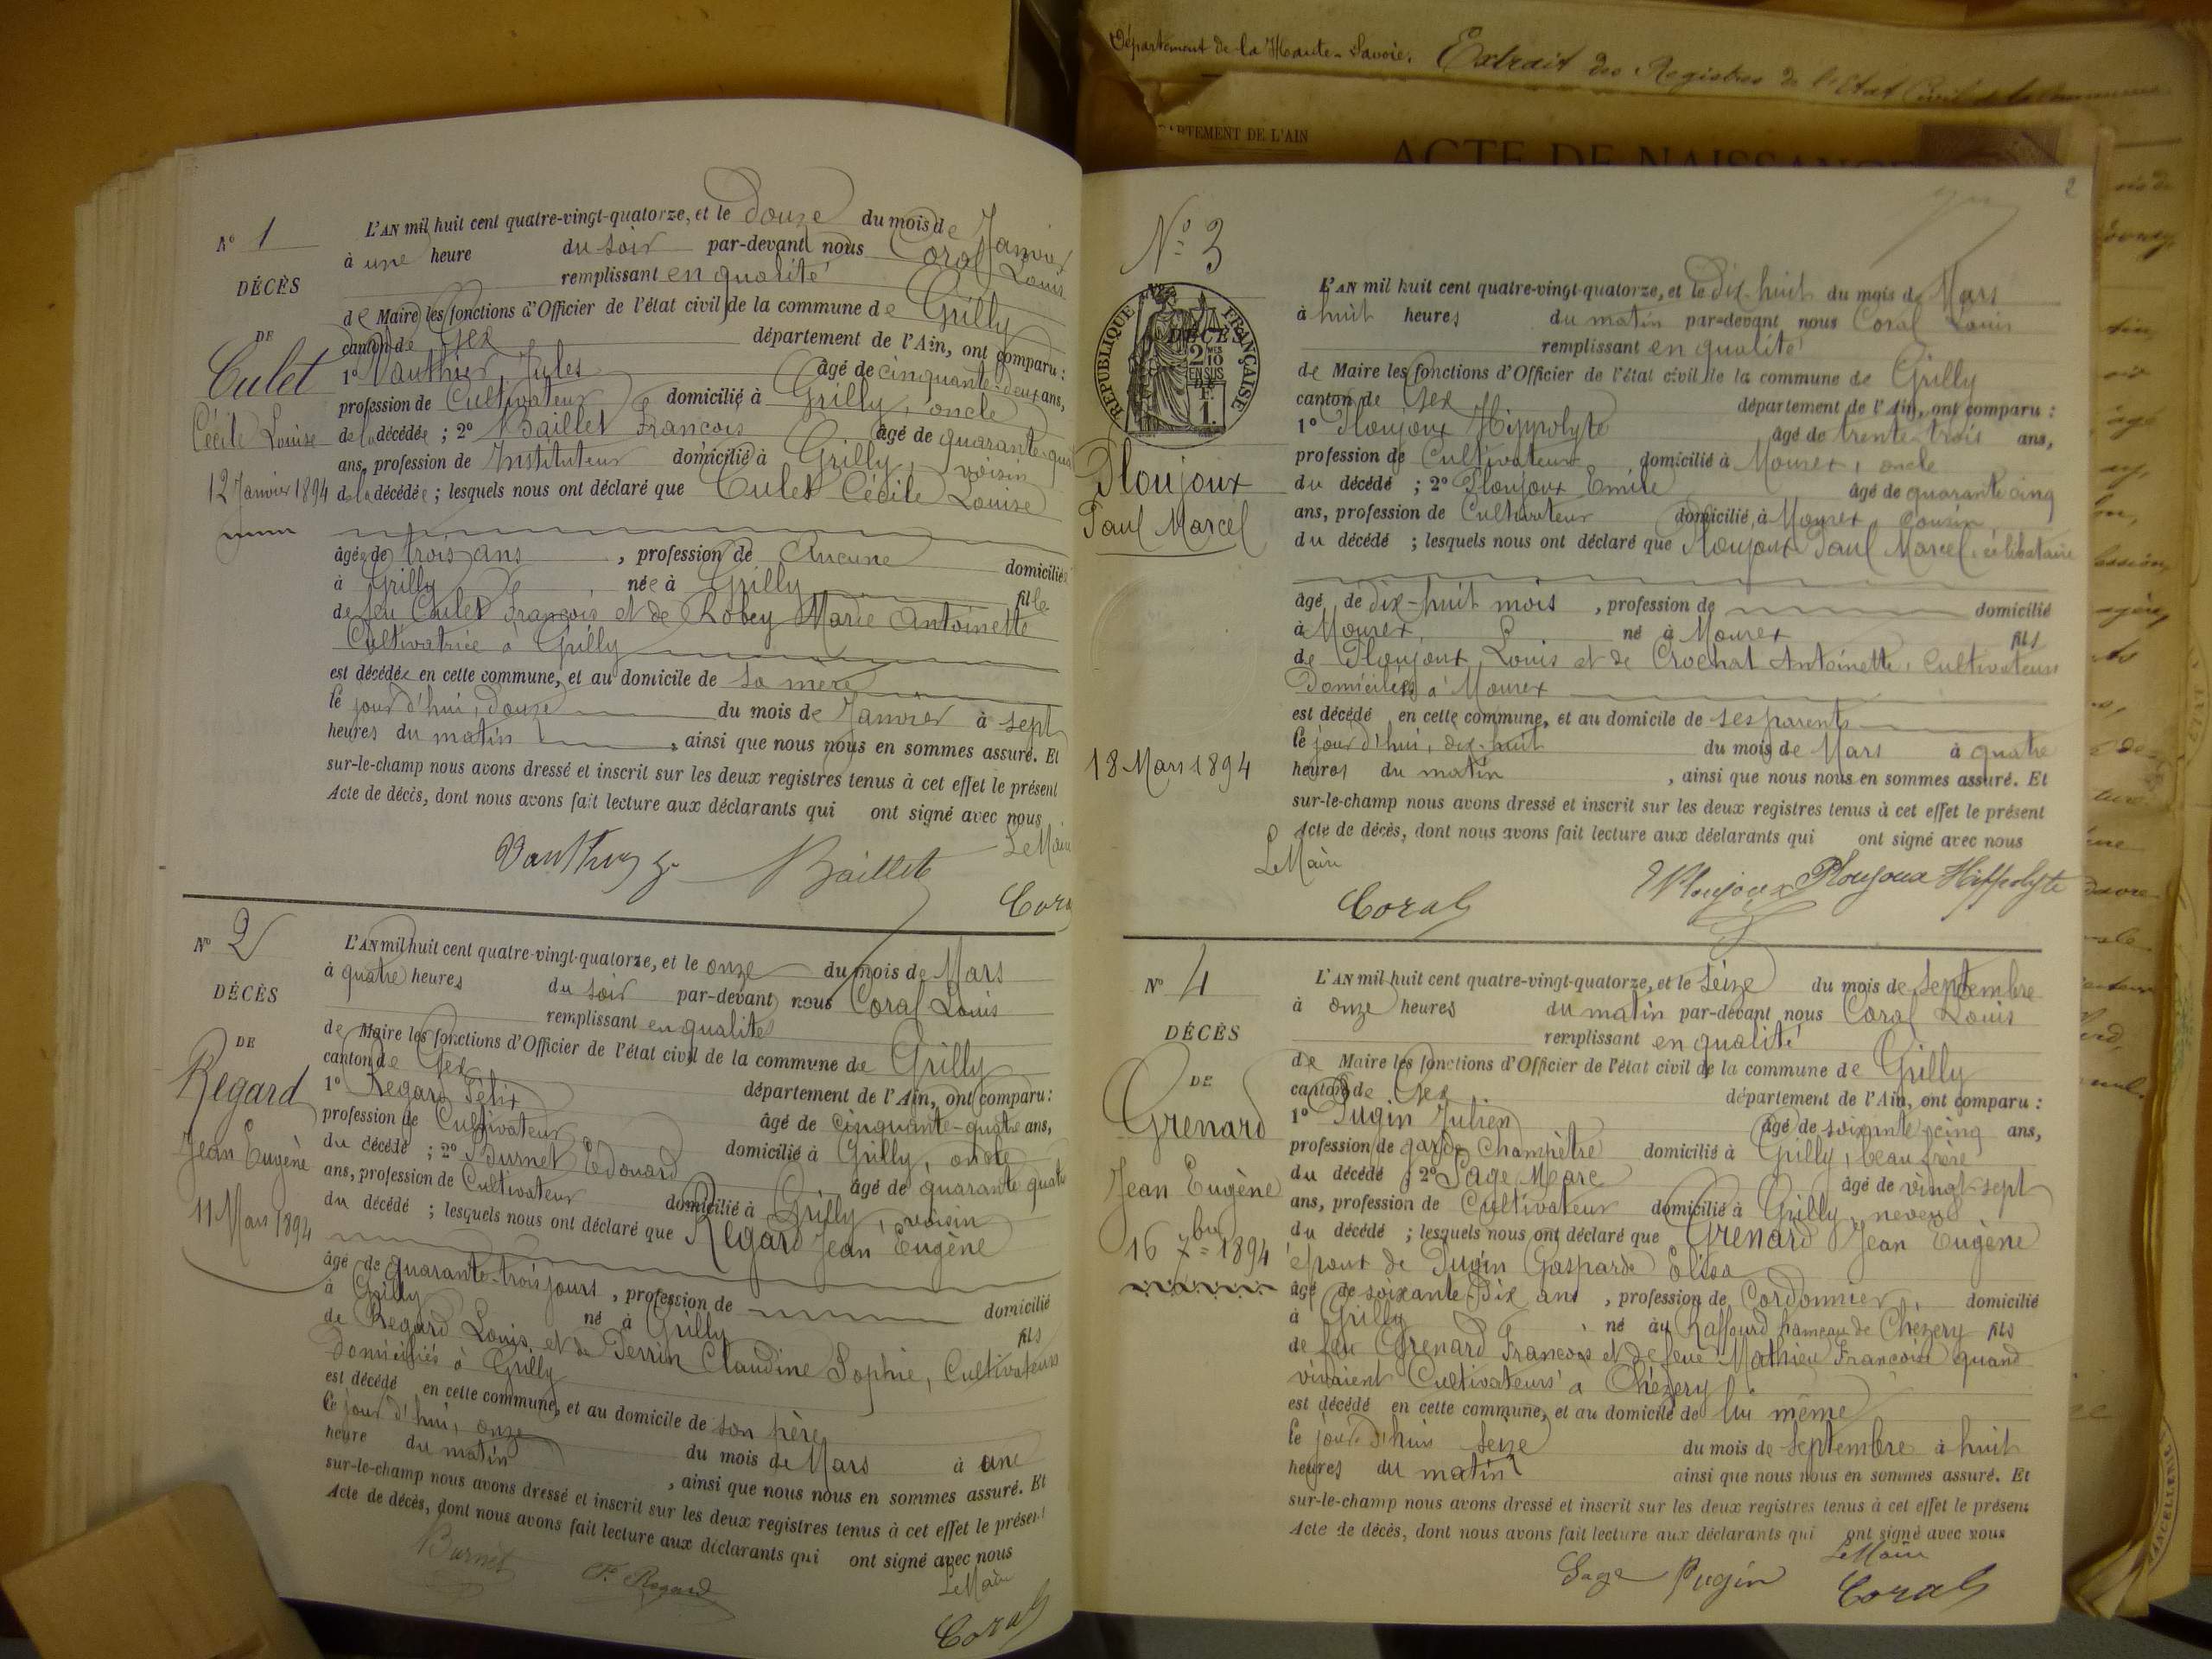 Département de la Haute-Savoie. Extrait des Registres de l'Etat Civil de la commune
DÉPARTEMENT DE L'AIN
ACTE DE NAISSANCE
N° 1
DÉCÈS
DE
Culet
Cécile Louise
12 Janvier 1894
L'AN mil huit cent quatre-vingt-quatorze, et le douze du mois de Janvier
à une heure du soir par-devant nous Coral Louis
remplissant en qualité
de Maire les fonctions d'Officier de l'état civil de la commune de Grilly
canton de Gex département de l'Ain, ont comparu :
1° Vauthier Jules âgé de cinquante-deux ans,
profession de Cultivateur domicilié à Grilly, oncle
de la décédée ; 2° Baillet François âgé de quarante-
ans, profession de Instituteur domicilié à Grilly, voisin
de la décédée ; lesquels nous ont déclaré que Culet Cécile Louise
âgée de trois ans, profession de Aucune domiciliée
à Grilly née à Grilly fille
de feu Culet François et de Robey Marie Antoinette
Cultivatrice à Grilly
est décédée en cette commune, et au domicile de sa mère
le jour d'hui, douze du mois de Janvier à sept
heures du matin, ainsi que nous nous en sommes assuré. Et
sur-le-champ nous avons dressé et inscrit sur les deux registres tenus à cet effet le présent
Acte de décès, dont nous avons fait lecture aux déclarants qui ont signé avec nous
Le Maire
Baillet
Coral
N° 2
DÉCÈS
DE
Regard
Jean Eugène
11 Mars 1894
L'AN mil huit cent quatre-vingt-quatorze, et le onze du mois de Mars
à quatre heures du soir par-devant nous Coral Louis
remplissant en qualité
de Maire les fonctions d'Officier de l'état civil de la commune de Grilly
canton de Gex département de l'Ain, ont comparu :
1° Regard Félix âgé de cinquante-quatre ans,
profession de Cultivateur domicilié à Grilly, oncle
du décédé ; 2° Burnet Edouard âgé de quarante quatre
ans, profession de Cultivateur domicilié à Grilly, voisin
du décédé ; lesquels nous ont déclaré que Regard Jean Eugène
âgé de quarante-trois jours, profession de domicilié
à Grilly né à Grilly fils
de Regard Louis et de Perrin Claudine Sophie, Cultivateurs
domiciliés à Grilly
est décédé en cette commune, et au domicile de son père
le jour d'hui, onze du mois de Mars à une
heure du matin, ainsi que nous nous en sommes assuré. Et
sur-le-champ nous avons dressé et inscrit sur les deux registres tenus à cet effet le présent
Acte de décès, dont nous avons fait lecture aux déclarants qui ont signé avec nous
Burnet F. Regard Le Maire
Coral
2
N° 3
RÉPUBLIQUE FRANÇAISE
DÉCÈS
2/10 EN SUS
1 F.
Ploujoux
Paul Marcel
18 Mars 1894
L'AN mil huit cent quatre-vingt-quatorze, et le dix-huit du mois de Mars
à huit heures du matin par-devant nous Coral Louis
remplissant en qualité
de Maire les fonctions d'Officier de l'état civil de la commune de Grilly
canton de Gex département de l'Ain, ont comparu :
1° Ploujoux Hippolyte âgé de trente-trois ans,
profession de Cultivateur domicilié à Mourex, oncle
du décédé ; 2° Ploujoux Emile âgé de quarante cinq
ans, profession de Cultivateur domicilié à Mourex, cousin
du décédé ; lesquels nous ont déclaré que Ploujoux Paul Marcel, célibataire
âgé de dix-huit mois, profession de domicilié
à Mourex né à Mourex fils
de Ploujoux Louis et de Crochat Antoinette, Cultivateurs
domiciliés à Mourex
est décédé en cette commune, et au domicile de ses parents
le jour d'hui, dix-huit du mois de Mars à quatre
heures du matin, ainsi que nous nous en sommes assuré. Et
sur-le-champ nous avons dressé et inscrit sur les deux registres tenus à cet effet le présent
Acte de décès, dont nous avons fait lecture aux déclarants qui ont signé avec nous
Le Maire
Coral E Ploujoux Ploujoux Hippolyte
N° 4
DÉCÈS
DE
Grenard
Jean Eugène
16 7bre 1894
L'AN mil huit cent quatre-vingt-quatorze, et le seize du mois de Septembre
à onze heures du matin par-devant nous Coral Louis
remplissant en qualité
de Maire les fonctions d'Officier de l'état civil de la commune de Grilly
canton de Gex département de l'Ain, ont comparu :
1° Pugin Julien âgé de soixante-cinq ans,
profession de garde Champêtre domicilié à Grilly, beau frère
du décédé ; 2° Sage Marc âgé de vingt-sept
ans, profession de Cultivateur domicilié à Grilly, neveu
du décédé ; lesquels nous ont déclaré que Grenard Jean Eugène
époux de Pugin Gasparde Elisa
âgé de soixante Dix ans, profession de Cordonnier, domicilié
à Grilly né au Raffourd hameau de Chézery fils
de feu Grenard François et de feue Mathieu Françoise quand
vivaient Cultivateurs à Chézery
est décédé en cette commune, et au domicile de lui même
le jour d'hui seize du mois de Septembre à huit
heures du matin ainsi que nous nous en sommes assuré. Et
sur-le-champ nous avons dressé et inscrit sur les deux registres tenus à cet effet le présent
Acte de décès, dont nous avons fait lecture aux déclarants qui ont signé avec nous
Le Maire
Sage Pugin Coral